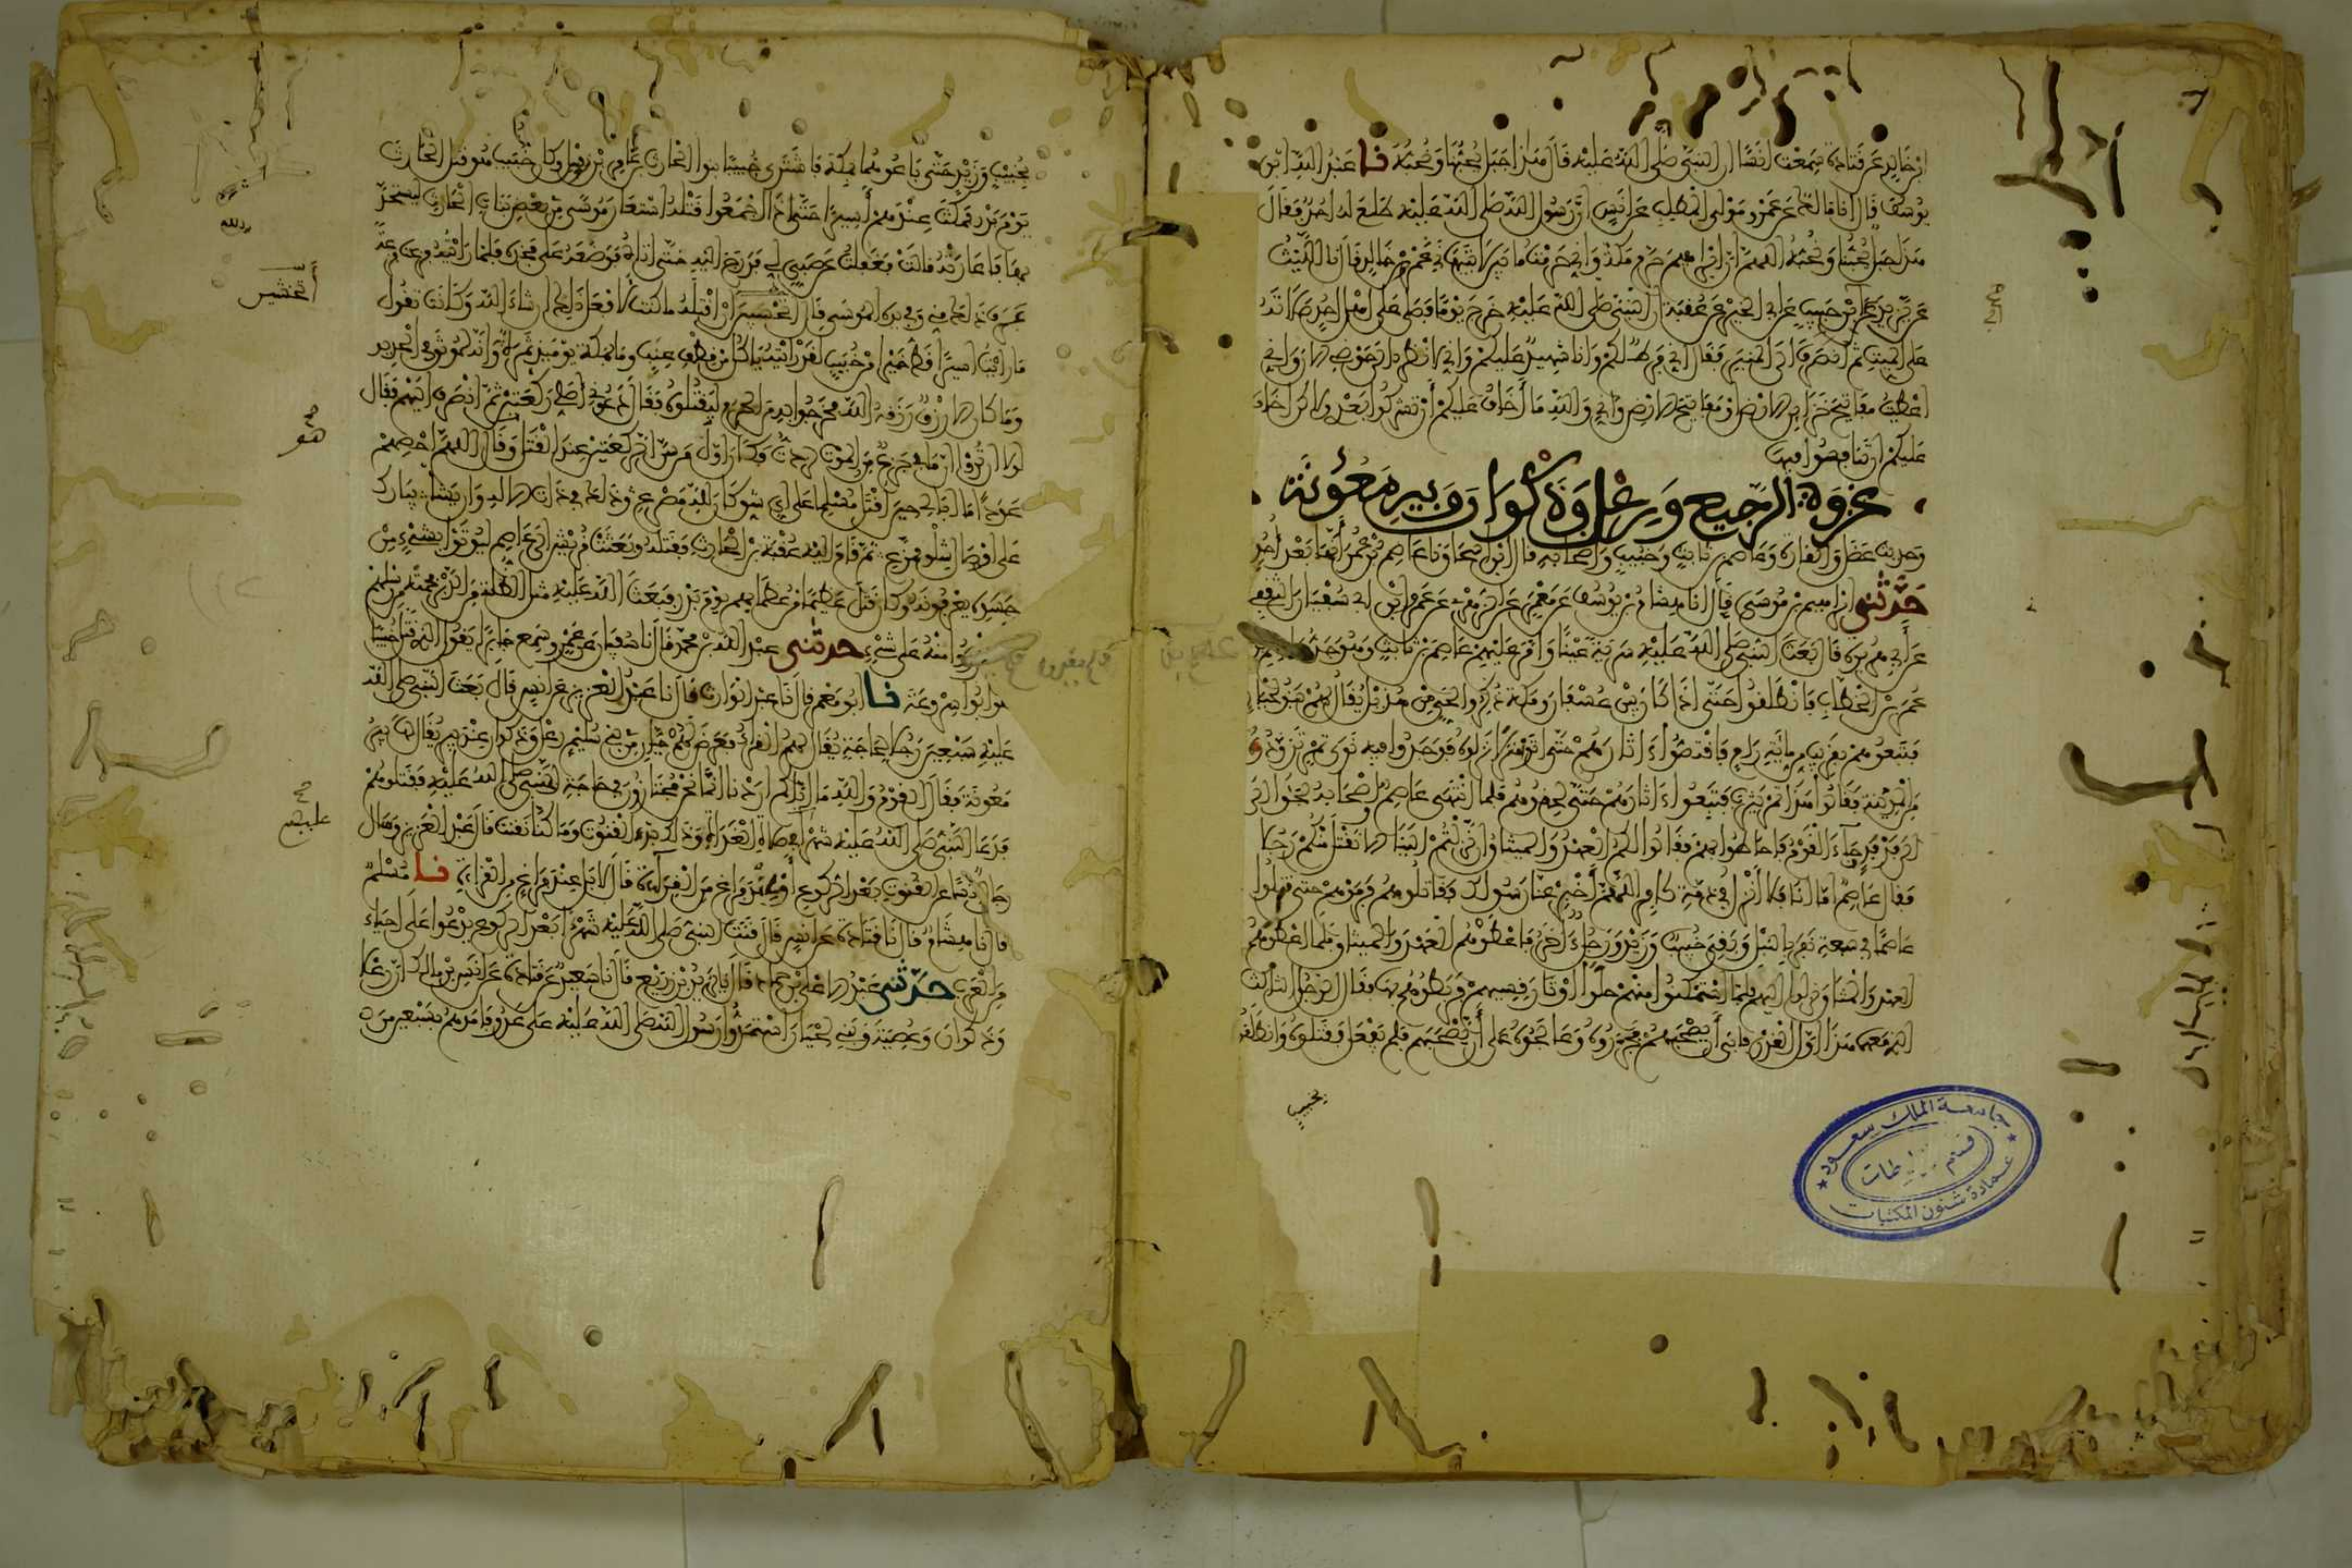 ابن خالد عن قتادة سمعت أنسا أن النبي صلى الله عليه قال هذا جبل يحبنا ونحبه نا عبد الله ابن
يوسف قال أنا مالك عن عمرو مولى المطلب عن أنس أن رسول الله صلى الله عليه طلع له أحد فقال
هذا جبل يحبنا ونحبه اللهم إن إبراهيم حرم مكة وإني حرمت ما بين لابتيها نى عمرو بن خالد قال نا الليث
عن يزيد بن أبي حبيب عن أبي الخير عن عقبة أن النبي صلى الله عليه خرج يوما فصلى على أهل أحد صلاته
على الميت ثم انصرف إلى المنبر فقال إني فرط لكم وأنا شهيد عليكم وإني لأنظر إلى حوضي الآن وإني
أعطيت مفاتيح خزائن الأرض أو مفاتيح الأرض وإني والله ما أخاف عليكم أن تشركوا بعدي ولكن أخاف
عليكم أن تنافسوا فيها
غزوة الرجيع ورعل وذكوان وبير معونة
وحديث عضل والقارة وعاصم بن ثابت وخبيب وأصحابه قال ابن إسحاق نا عاصم بن عمر أنها بعد أحد
حدثني إبراهيم بن موسى قال أنا هشام بن يوسف عن معمر عن الزهري عن عمرو بن أبي سفيان الثقفي
عن أبي هريرة قال بعث النبي صلى الله عليه سرية عينا وأمر عليهم عاصم بن ثابت وهو جد
عمر بن الخطاب فانطلقوا حتى إذا كان بين عسفان ومكة ذكروا لحي من هذيل يقال لهم بنو لحيان
فتبعوهم بقريب من مائة رام فاقتصوا آثارهم حتى أتوا منزلا نزلوه فوجدوا فيه نوى تمر تزودوه
من المدينة فقالوا هذا تمر يثرب فتبعوا آثارهم حتى لحقوهم فلما انتهى عاصم وأصحابه لجوا إلى
فدفد وجاء القوم فأحاطوا بهم فقالوا لكم العهد والميثاق إن نزلتم إلينا ألا نقتل منكم رجلا
فقال عاصم أما أنا فلا أنزل في ذمة كافر اللهم أخبر عنا رسولك فقاتلوهم فرموهم حتى قتلوا
عاصما في سبعة نفر بالنبل وبقي خبيب وزيد ورجل آخر فأعطوهم العهد والميثاق فلما أعطوهم
العهد والميثاق نزلوا إليهم فلما استمكنوا منهم حلوا أوتار قسيهم فربطوهم بها فقال الرجل الثالث
الذي معهما هذا أول الغدر فأبى أن يصحبهم فجرروه وعالجوه على أن يصحبهم فلم يفعل فقتلوه وانطلقوا
بخبيب
جامعة الملك سعود
قسم المخطوطات
عمادة شئون المكتبات
بخبيب وزيد حتى باعوهما بمكة فاشترى خبيبا بنوا الحارث بن عامر بن نوفل وكان خبيب هو قتل الحارث
يوم بدر فمكث عندهم أسيرا حتى إذا أجمعوا قتله استعار موسى من بعض بنات الحارث ليستحد
بها فأعارته قالت فغفلت عن صبي لي فدرج إليه حتى أتاه فوضعه على فخذه فلما رأيته فزعت فزعة
عرف ذلك مني وفي يده الموسى قال أتخشين أن أقتله ما كنت لأفعل ذلك إن شاء الله وكانت تقول
ما رأيت أسيرا قط خيرا من خبيب لقد رأيته يأكل من قطف عنب وما بمكة يومئذ ثمرة وإنه لموثق في الحديد
وما كان إلا رزق رزقه الله فخرجوا به من الحرم ليقتلوه فقال دعوني أصلي ركعتين ثم انصرف إليهم فقال
لولا أن تروا أن ما بي جزع من الموت لزدت فكان أول من سن الركعتين عند القتل وقال اللهم أحصهم
عددا ما أبالي حين أقتل مسلما على أي شق كان لله مصرعي وذلك في ذات الإله وإن يشأ يبارك
على أوصال شلو ممزع ثم قام إليه عقبة بن الحارث فقتله وبعثت قريش إلى عاصم ليؤتوا بشيء من
جسده يعرفونه وكان قتل عظيما من عظمائهم يوم بدر فبعث الله عليه مثل الظلة من الدبر فحمته من رسلهم
فلم يقدروا منه على شيء حدثني عبد الله بن محمد قال نا سفيان عن عمرو سمع جابرا يقول الذي قتل خبيبا
هو أبو سروعة نا أبو معمر قال نا عبد الوارث قال نا عبد العزيز عن أنس قال بعث النبي صلى الله
عليه سبعين رجلا لحاجة يقال لهم القراء فعرض لهم حيان من بني سليم رعل وذكوان عند بير يقال لها بير
معونة فقال القوم والله ما إياكم أردنا إنما نحن مجتازون في حاجة النبي صلى الله عليه فقتلوهم
فدعا النبي صلى الله عليه شهرا في صلاة الغداة وذلك بدء القنوت وما كنا نقنت قال عبد العزيز وسأل
رجل أنسا عن القنوت بعد الركوع أو عند فراغ من القراءة قال لا بل عند فراغ من القراءة نا مسلم
قال نا هشام قال نا قتادة عن أنس قال قنت النبي صلى الله عليه شهرا بعد الركوع يدعوا على أحياء
من العرب حدثني عبد الأعلى بن حماد قال نا يزيد بن زريع قال نا سعيد عن قتادة عن أنس بن مالك أن رعلا
وذكوان وعصية وبني لحيان استمدوا رسول الله صلى الله عليه على عدو فأمدهم بسبعين من
أتخشين
هو
عليهم